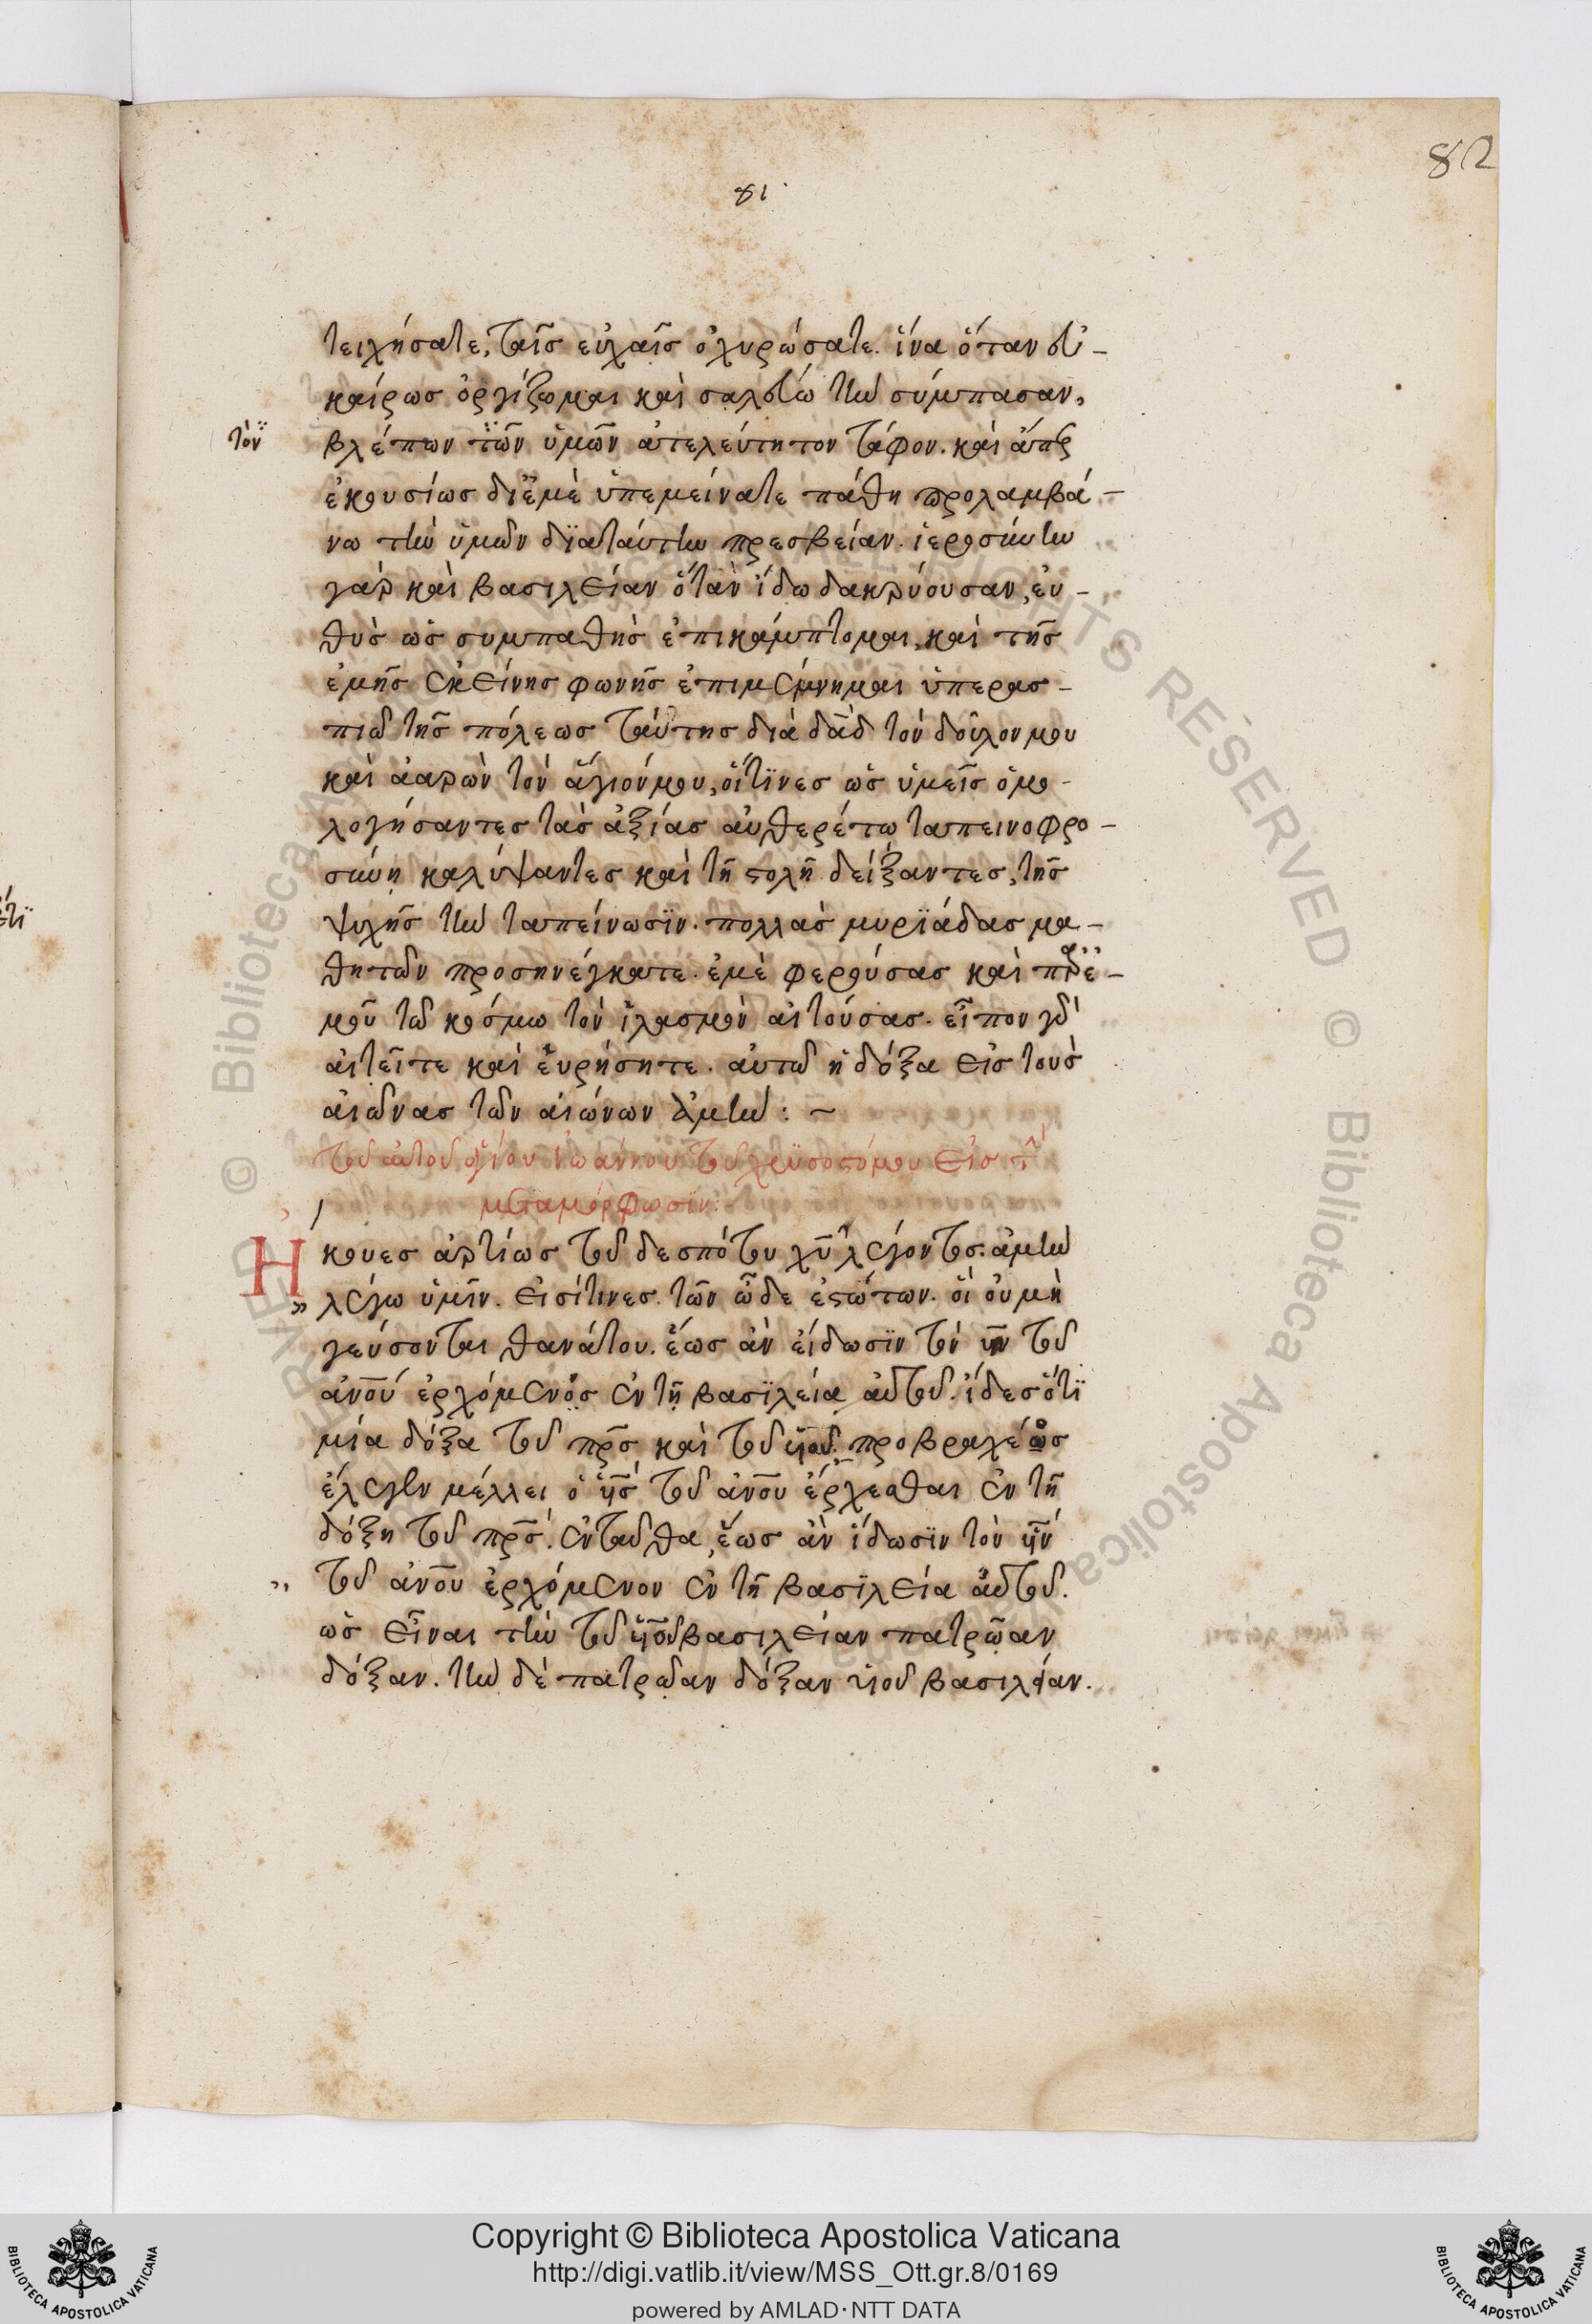 82
81
τειχήσατε, ταῖς εὐχαῖς ὀχυρώσατε. ἵνα ὅταν εὐ-
καίρως ὀργίζομαι καὶ σαλεύω τὴν σύμπασαν,
τὸν βλέπων τῶν ὑμῶν ἀτελεύτητον τάφον. καὶ ἅπερ
ἑκουσίως διἐμὲ ὑπεμείνατε πάθη προλαμβά-
νω τὴν ὑμῶν διαταύτην πρεσβείαν. ἱεροσύνην
γὰρ καὶ βασιλείαν ὅταν ἴδω δακρύουσαν, εὐ-
θὺς ὡς συμπαθὴς ἐπικάμπτομαι, καὶ τῆς
ἐμῆς ἐκείνης φωνῆς ἐπιμέμνημαι ὑπερασ-
πιῶ τῆς πόλεως ταύτης διὰ δᾱδ τὸν δοῦλον μου
καὶ ἀαρὼν τὸν ἅγιόν μου, οἵτϊνες ὡς ὑμεῖς ὁμο-
λογήσαντες τὰς ἀξίας αὐθερέτω ταπεινοφρο-
σύνη καλύψαντες καὶ τῇ στολῇ δείξαντες, τῆς
ψυχῆς τὴν ταπείνωσϊν. πολλὰς μυρϊάδας μα-
θητῶν προσηνέγκατε. ἐμὲ φερούσας καὶ παρἐ-
μοῦ τῶ κόσμω τὸν ἱλασμὸν αἰτούσας. εἶπον γὰρ
αἰτεῖτε καὶ εὑρήσητε. αὐτῶ ἡ δόξα εἰς τοὺς
αἰῶνας τῶν αἰώνων ἀμήν: ~
τοῦ αὐτοῦ ἁγίου ἰωάννου τοῦ χρϋσοστόμου εἰς τὴν
μεταμόρφωσϊν:
Ἤκουες ἀρτίως τοῦ δεσπότου χῡ λέγοντος. ἀμὴν
» λέγω ὑμῖν. εἰσίτινες τῶν ὧδε ἑστώτων. οἳ οὐ μὴ
γεύσονται θανάτου. ἕως ἂν εἴδωσϊν τὸν ῡν τοῦ
ἀνο̄ύ ἐρχόμενος ἐν τῇ βασϊλεία αὐτοῦ. ἴδες ὅτϊ
μία δόξα τοῦ πρ̄ς καὶ τοῦ υἱοῦ. προβραχέως
ἔλεγεν μέλλει ὁ ῡς τοῦ ἀνο̄υ ἔρχεσθαι ἐν τῇ
δόξη τοῦ πρ̄ς. ἐνταῦθα, ἕως ἂν ἴδωσϊν τὸν ῡν
» τοῦ ἀνο̄υ ἐρχόμενον ἐν τῇ βασϊλεία αὐτοῦ.
ὡς εἶναι τὴν τοῦ υἱοῦ βασιλείαν πατρῶαν
δόξαν. τὴν δὲ πατρῶαν δόξαν υἱοῦ βασιλείαν.
Copyright © Biblioteca Apostolica Vaticana
http://digi.vatlib.it/view/MSS_Ott.gr.8/0169
powered by AMLAD·NTT DATA